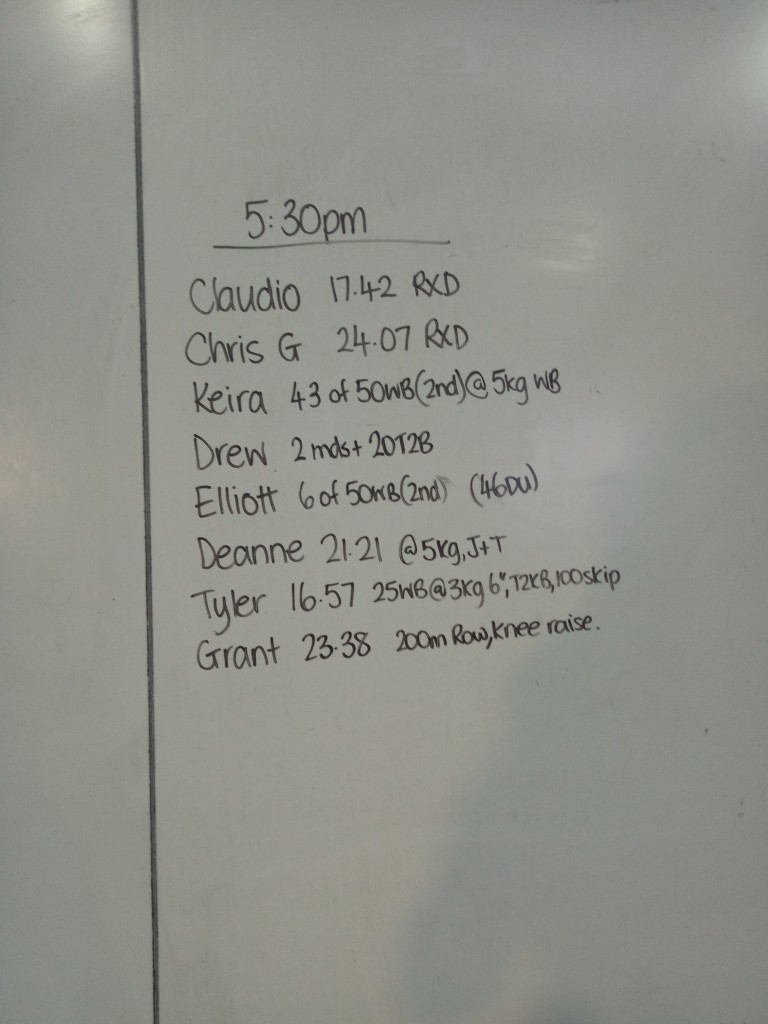 5:30pm
Claudio 17.42 RXD
Chris G 24.07 RXD
Keira 43 of 50WB(2nd)@5kg WB
Drew 2 rnds+ 20T2B
Elliott 6 of 50WB(2nd) (46DU)
Deanne 21.21 @5kg, J+T
Tyler 16.57 25WB@3kg 6", T2KB, 100skip
Grant 23.38 200m Row, Knee raise.